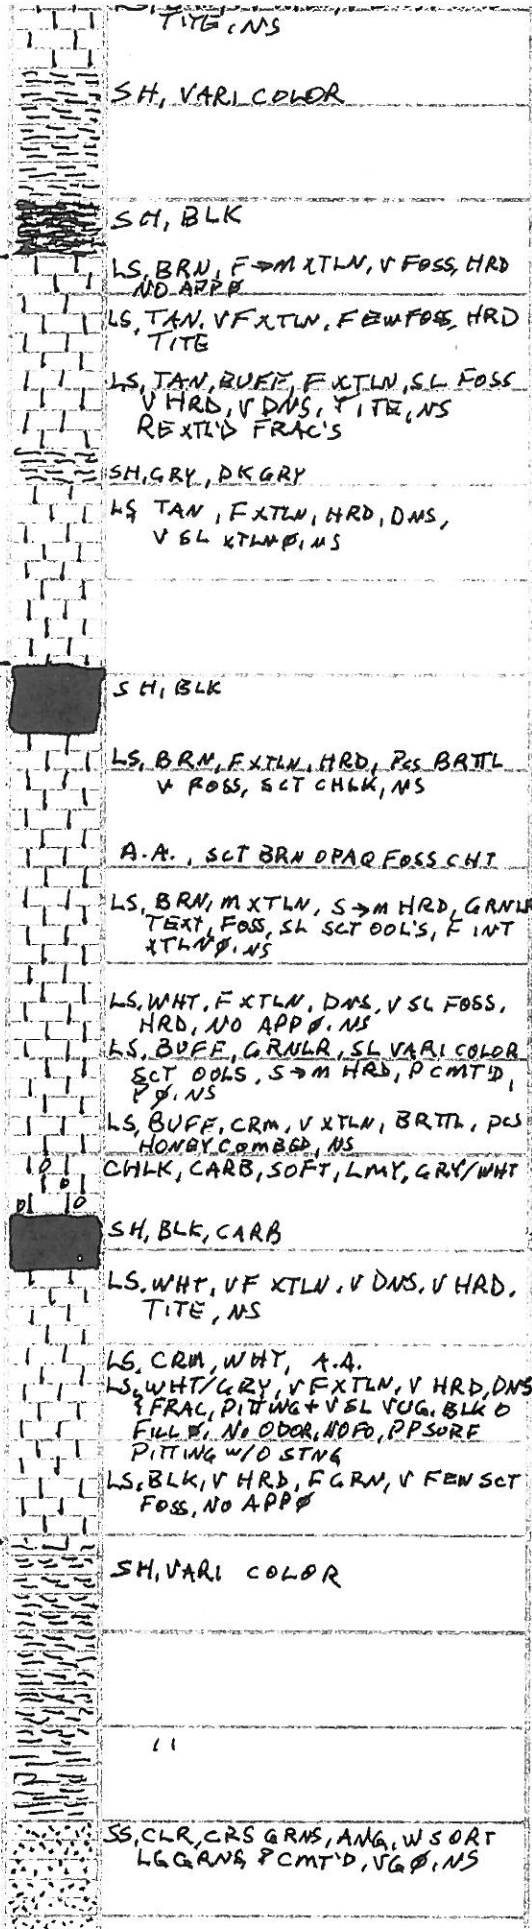 TITE, NS
SH, VARI COLOR
SH, BLK
LS, BRN, F→M XTLN, V FOSS, HRD
NO APP Ø
LS, TAN, VF XTLN, FEW FOSS, HRD
TITE
LS, TAN, BUFF, F XTLN, SL FOSS
V HRD, V DNS, TITE, NS
REXTL'D FRAC'S
SH, GRY, DK GRY
LS TAN, F XTLN, HRD, DNS,
V SL XTLN Ø, NS
SH, BLK
LS, BRN, F XTLN, HRD, PCS BRTTL
V FOSS, SCT CHLK, NS
A.A., SCT BRN OPAQ FOSS CHT
LS, BRN, M XTLN, S→M HRD, GRNLR
TEXT, FOSS, SL SCT OOL'S, F INT
XTLN Ø, NS
LS, WHT, F XTLN, DNS, V SL FOSS,
HRD, NO APP Ø, NS
LS, BUFF, GRNLR, SL VARI COLOR
SCT OOLS, S→M HRD, P CMT'D,
Ø, NS
LS, BUFF, CRM, V XTLN, BRTTL, PCS
HONEYCOMBED, NS
CHLK, CARB, SOFT, LMY, GRY/WHT
SH, BLK, CARB
LS, WHT, VF XTLN, V DNS, V HRD,
TITE, NS
LS, CRM, WHT, A.A.
LS, WHT/GRY, VF XTLN, V HRD, DNS
FRAC, PITTING + V SL VUG, BLK O
FILL Ø, NO ODOR, NO FO, PP SURF
PITTING W/O STNG
LS, BLK, V HRD, F GRN, V FEW SCT
FOSS, NO APP Ø
SH, VARI COLOR
''
SS, CLR, CRS GRNS, ANG, W SORT
LG GRNS, P CMT'D, VG Ø, NS